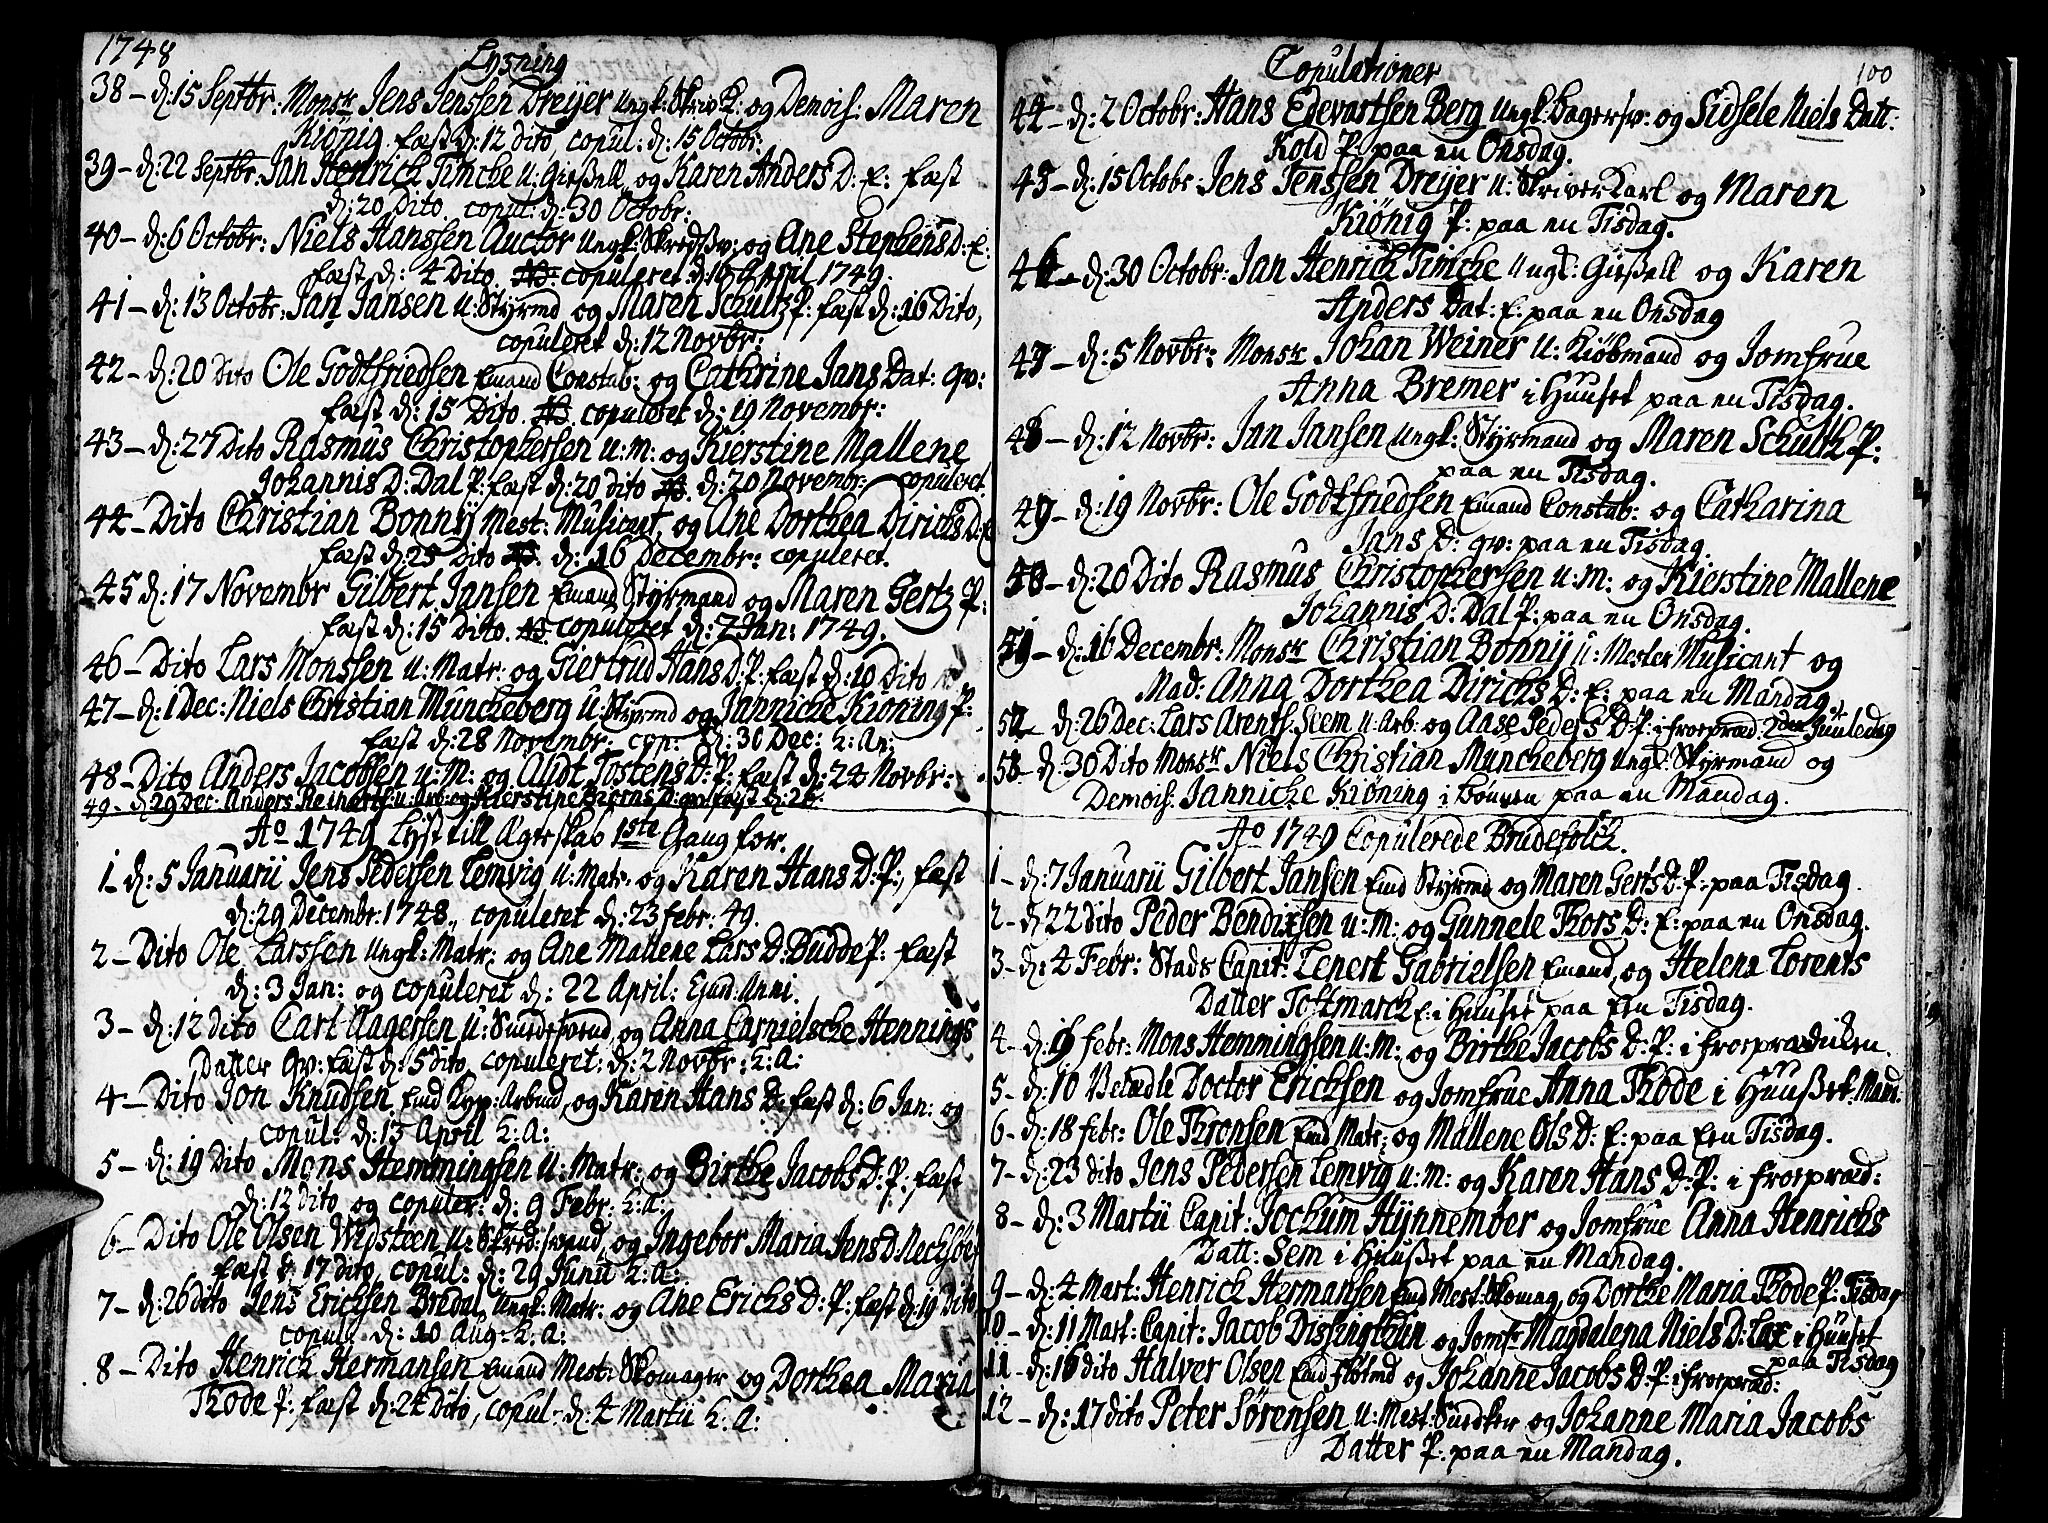 1748
Lysning
38 – d: 15 Septbr: Monsr Jens Jenssen Dreÿer ungk: Skriv K: og Demois: Maren
Kiönig. fæst d: 12 Dito, copul: d: 15 Octobr:
39 – d: 22 Septbr. Jan Henrich Timche u: Gießell, og Karen Anders D: E: fæst
d: 20 Dito. copul: d: 30 Octobr:
40 – d: 6 Octobr: Niels Hanssen Auctor ungk: Skredsv: og Ane Stephens D: E:
fæst d: 4 Dito. copuleret d. 16 April 1749.
41 – d: 13 Octobr: Jan Jansen u: Stÿrmd og Maren Schultz P: fæst d: 16 Dito,
copuleret d: 12 Novbr:
42 – d: 20 Dito Ole Godtfriedsen Emand Constab: og Cathrine Jans Dat: qv:
fæst d: 15 Dito. copuleret d: 19 Novembr:
43 – d: 27 Dito Rasmus Christophersen u: m: og Kierstine Mallene
Johannis D: Dal P: fæst d: 20 dito d: 20 Novembr: copuleret.
44 – Dito Christian Bonnÿ Mest: Musicant, og Ane Dorthea Dirichs D: E
fæst d: 25 Dito d: 16 Decembr: copuleret.
45 d: 17 Novembr Gilbert Jansen Emand Stÿrmand og Maren Gertz P:
fæst d: 15 Dito. copuleret d: 7 Jan: 1749.
46 – Dito Lars Monssen u: Matr: og Giertrud Hans D: P: fæst d: 10 Dito
47 – d: 1 Dec: Niels Christian Müncheberg u: Stÿrmd og Jannicke Kiöning P:
fæst d: 28 Novembr: cop: d: 30 Dec: h: An:
48 – Dito Anders Jacobsen u: M: og Alidt Tostens D: P: fæst d: 24 Novbr:
49 – d: 29 Dec: Anders Reinerts: u: Arb: og Kierstine Biørns D: qv: føyst d: 28
Ao 1749 Lyst till Ægteskab 1ste Gang for.
1 – d: 5 Januarii Jens Pedersen Lemvig u: Matr: og Karen Hans D: P:, fæst
d: 29 Decembr: 1748., copuleret d: 23 febr: 49.
2 – Dito Ole Larssen ungk: Matr: og Ane Mallene Lars D: Budde P: fæst
d: 3 Jan: og copuleret d: 22 April: Ejusd: Anni.
3 – d: 12 dito Carl Aagessen u: Smedesvend, og Anna Carnielsche Hennings
Datter qv: fæst d: 5 dito, copuleret: d: 2 Novbr: h: a:
4 – Dito Jon Knudsen Emd Arbmd, og Karen Hans D: fæst d: 6 Jan: og
copul: d: 13 April h: a:
5 – d: 19 Dito Mons Hemmingsen u: Matr: og Birthe Jacobs D: P: fæst
d: 12 Dito og copuler: d: 9 Febr: h: a:
6 – Dito Ole Olsen Widsteen u: Skred: svend, og Ingebor Maria Jens D:
fæst d 17 dito, copul: d: 29 Junii h: a:
7 – d: 26 dito Jens Erichsen Bredal ungk: Matr: og Ane Erichs D: P: fæst d: 19 Dito
copul: d: 10 Aug: h: a:
8 – Dito Henrich Hermansen Emand Mest: Skomager og Dorthea Maria
Thode P:, fæst d: 24 Dito, copul: d: 4 Martii h: a:
Copulationer
100
44 – d: 2 Octobr: Hans Edevartsen Berg ungk: bagersv: og Sidsele Niels Datt:
Kold P: paa en Onsdag.
45 – d: 15 Octobr: Jens Jenssen Dreÿer u: SkriverKarl og Maren
Kiönig P: paa en Tisdag.
46 – d: 30 Octobr: Jan Henrich Timche Ungk: Gießell og Karen
Anders Dat: E: paa en Onsdag
47 – d: 5 Novbr: Monsr Johan Weiner u: Kiöbmand og Jomfrue
Anna Bremer i Huuset paa en Tisdag.
48 – d: 12 Novbr: Jan Jansen ungk: Stÿrmand og Maren Schultz P:
paa en Tisdag.
49 – d: 19 Novbr: Ole Godtfriedsen Emand Constab: og Catharina
Jans D: qv: paa en Tisdag.
50 – d: 20 Dito Rasmus Christophersen u: m: og Kierstine Mallene
Johannis D: Dal P: paa en Onsdag.
51 – d: 16 Decembr: Monsr Christian Bonnÿ u: Mester Musicant og
Mad: Anna Dorthea Dirichs D: E: paa en Mandag.
52 d: 26 Dec: Lars Arents: Scem u: Arb: og Aase Peders D: P: i froepræd: 2den Juuledag
53 – d: 30 Dito Monsr Niels Christian Müncheberg ungk: Stÿrmand og
Demois: Jannicke Kiöning i bönnen paa en Mandag.
Ao 1749 Copulerede Brudefolck.
1 – d: 7 Januarii Gilbert Jansen Emd Stÿrmd og Maren Gerts D: P: paa Tisdag.
2 – d: 22 dito Peder Bendixsen u: m: og Gunnele Thors D: E: paa en Onsdag.
3 – d: 4 Febr: Stads Capit: Lenert Gabrielsen Emand, og Helena Lorents
Datter Toftmarck E: i Huuset paa Een Tisdag.
4 – d: 9 febr: Mons Hemmingsen u: m: og Birthe Jacobs D: P: i froepræediken.
5 – d: 10 Velædle Doctor Erichsen og Jomfrue Anna Thode i Huußet. Mand:
6 – d: 18 febr: Ole Thronsen Emd Matr: og Mallene Ols D: E: paa Een Tisdag.
7 – d: 23 dito Jens Pedersen Lemvig u: m: og Karen Hans D: P: i froepræd:
8 – d: 3 Martii Capit: Jochum Hÿnnember og Jomfrue Anna Henrichs
Datt: Sem i Huußet paa en Mandag.
9 – d: 4 Mart: Henrich Hermansen Emd Mest: Skomag, og Dorthe Maria Thode P: Tisdag
10 – d: 11 Mart: Capit: Jacob Dissingthun og Jomfr Magdalena Niels D: Lax i Huuset
paa Tisdag
11 – d: 16 dito Halver Olsen Emd flötmd og Johanne Jacobs D: P: i froepræd:
12 – d: 17 dito Peter Sörensen u: Mest: Snedker og Johanne Maria Jacobs
Datter P: paa en Mandag.